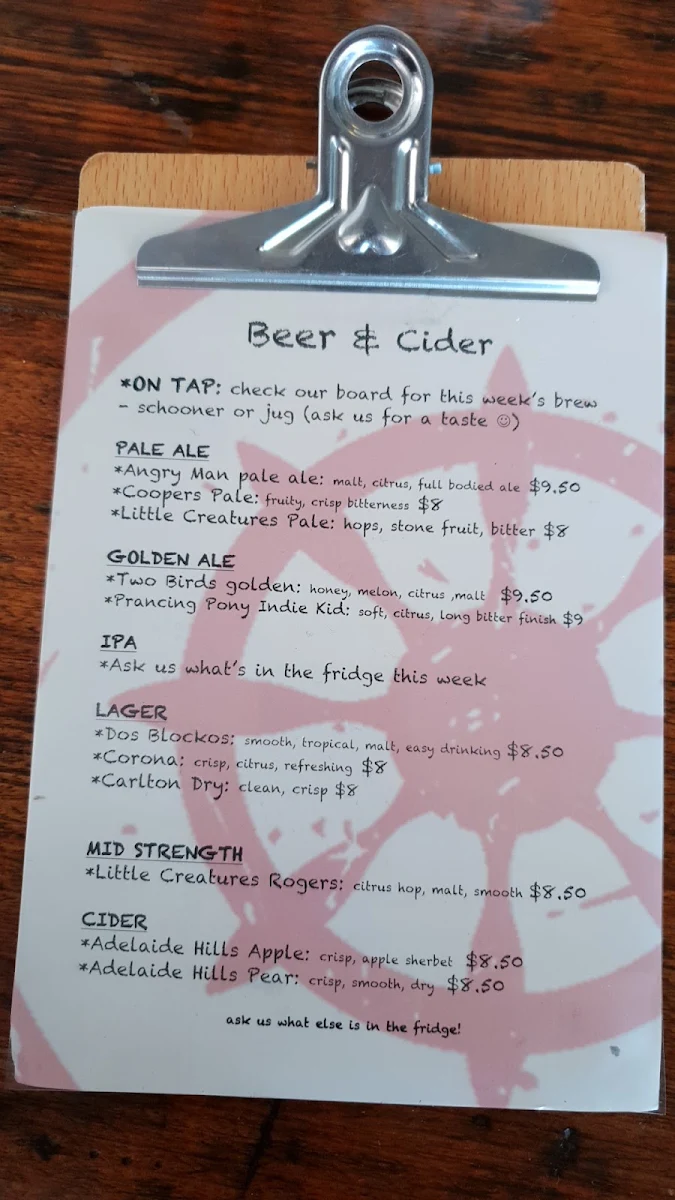 Beer & Cider
*ON TAP: check our board for this week's brew
- schooner or jug (ask us for a taste ☺)
PALE ALE
*Angry Man pale ale: malt, citrus, full bodied ale $9.50
*Coopers Pale: fruity, crisp bitterness $8
*Little Creatures Pale: hops, stone fruit, bitter $8
GOLDEN ALE
*Two Birds golden: honey, melon, citrus ,malt $9.50
*Prancing Pony Indie Kid: soft, citrus, long bitter finish $9
IPA
*Ask us what's in the fridge this week
LAGER
*Dos Blockos: smooth, tropical, malt, easy drinking $8.50
*Corona: crisp, citrus, refreshing $8
*Carlton Dry: clean, crisp $8
MID STRENGTH
*Little Creatures Rogers: citrus hop, malt, smooth $8.50
CIDER
*Adelaide Hills Apple: crisp, apple sherbet $8.50
*Adelaide Hills Pear: crisp, smooth, dry $8.50
ask us what else is in the fridge!